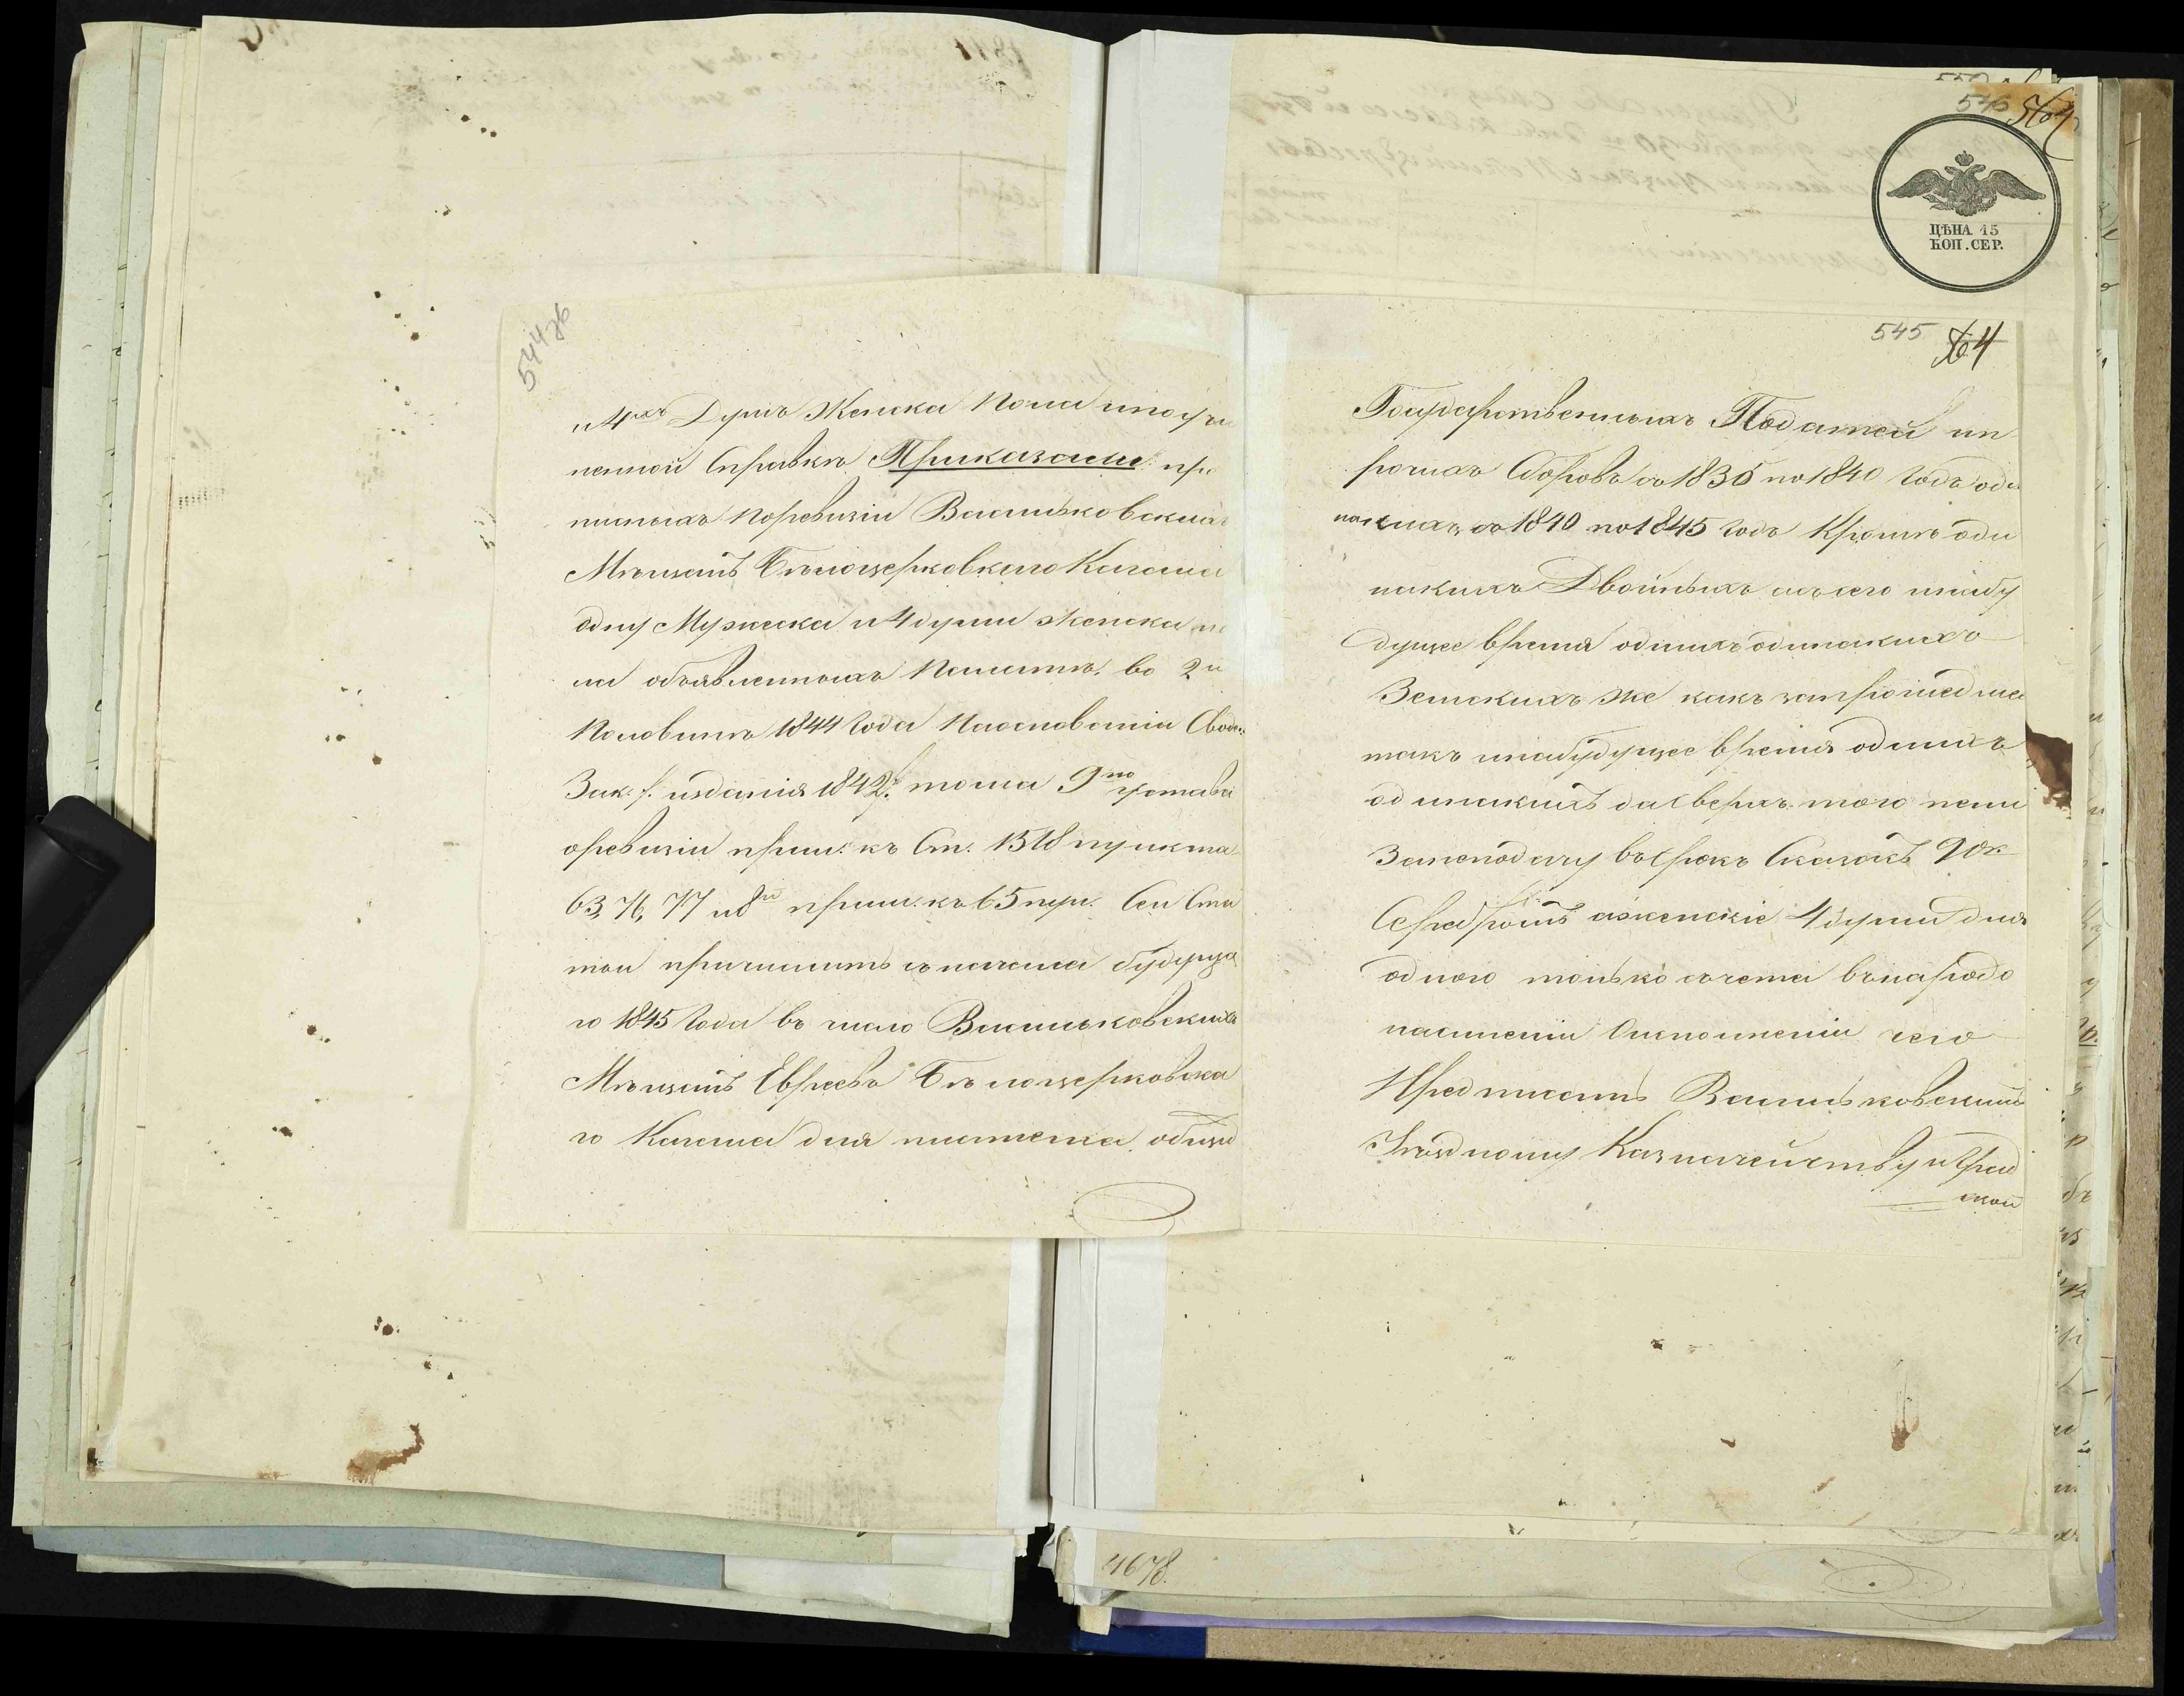 544 об
и 4хъ Душъ Женска Пола и по учи
ненной Справкѣ Приказали: про
писныхъ по ревизіи Васильковскихъ
Мѣщанъ Бѣлоцерковскаго Кагала
одну Мужеска и 4 души женска по
ла объявленныхъ Палатѣ во 2й
Половинѣ 1844 Года На основаніи Свода
Зак. издания 1842 г. тома 9го устава
о ревизіи прим. къ Ст. 1518 пункта
63, 76, 77 и 8й прим. къ 65 пун. Сей Ста
тьи причислить съ начала будуща
го 1845 Года въ число Васильковскихъ
Мѣщанъ Евреевъ Бѣлоцерковска
го Кагала для платежа общаго
ЦѢНА 15
КОП. СЕР.
546
545
Государственныхъ Податей и п
рочихъ Сборовъ съ 1835 по 1840 Годъ оди
накихъ, съ 1840 по 1845 Годъ Кромѣ оди
накихъ Двойныхъ а съ сего и на бу
дущее время однихъ одинакихъ
Земскихъ же какъ за прошедшее
такъ и на будущее время однихъ
одинакихъ да сверхъ того пени
за неподачу въ срокъ Сказокъ 90 к
Серебромъ а женскіе 4 души для
одного только счета въ народо
населеніи О исполненіи чего
Предписать Васильковскому
Уѣздному Казначейству и Град
ской
4678.